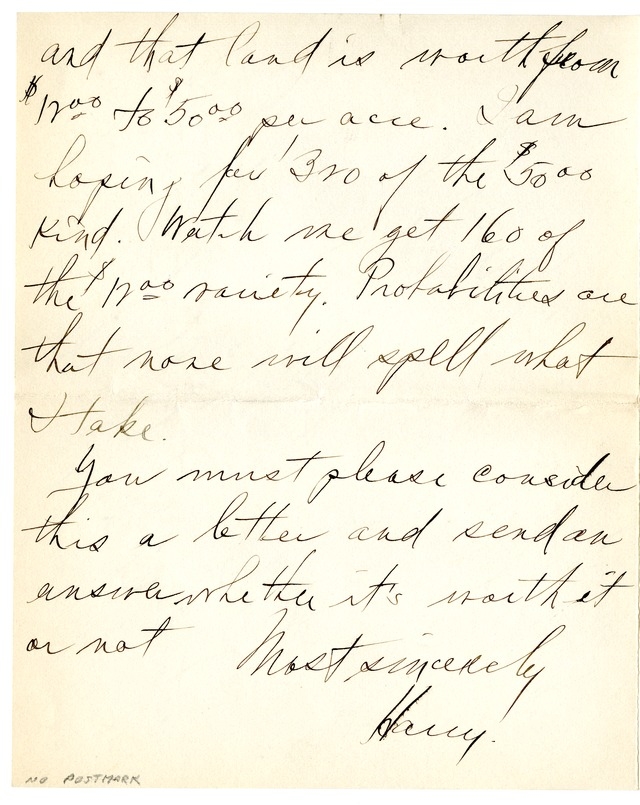 and that land is worth from
$12 00 to $50 00 per acre. I am
hoping for 320 of the $50 00
kind. Watch me get 160 of
the $12 00 variety. Probabilities are
that none will spell what
I take.
You must please consider
this a letter and send an
answer whether it's worth it
or not
Most sincerely
Harry.
NO POSTMARK